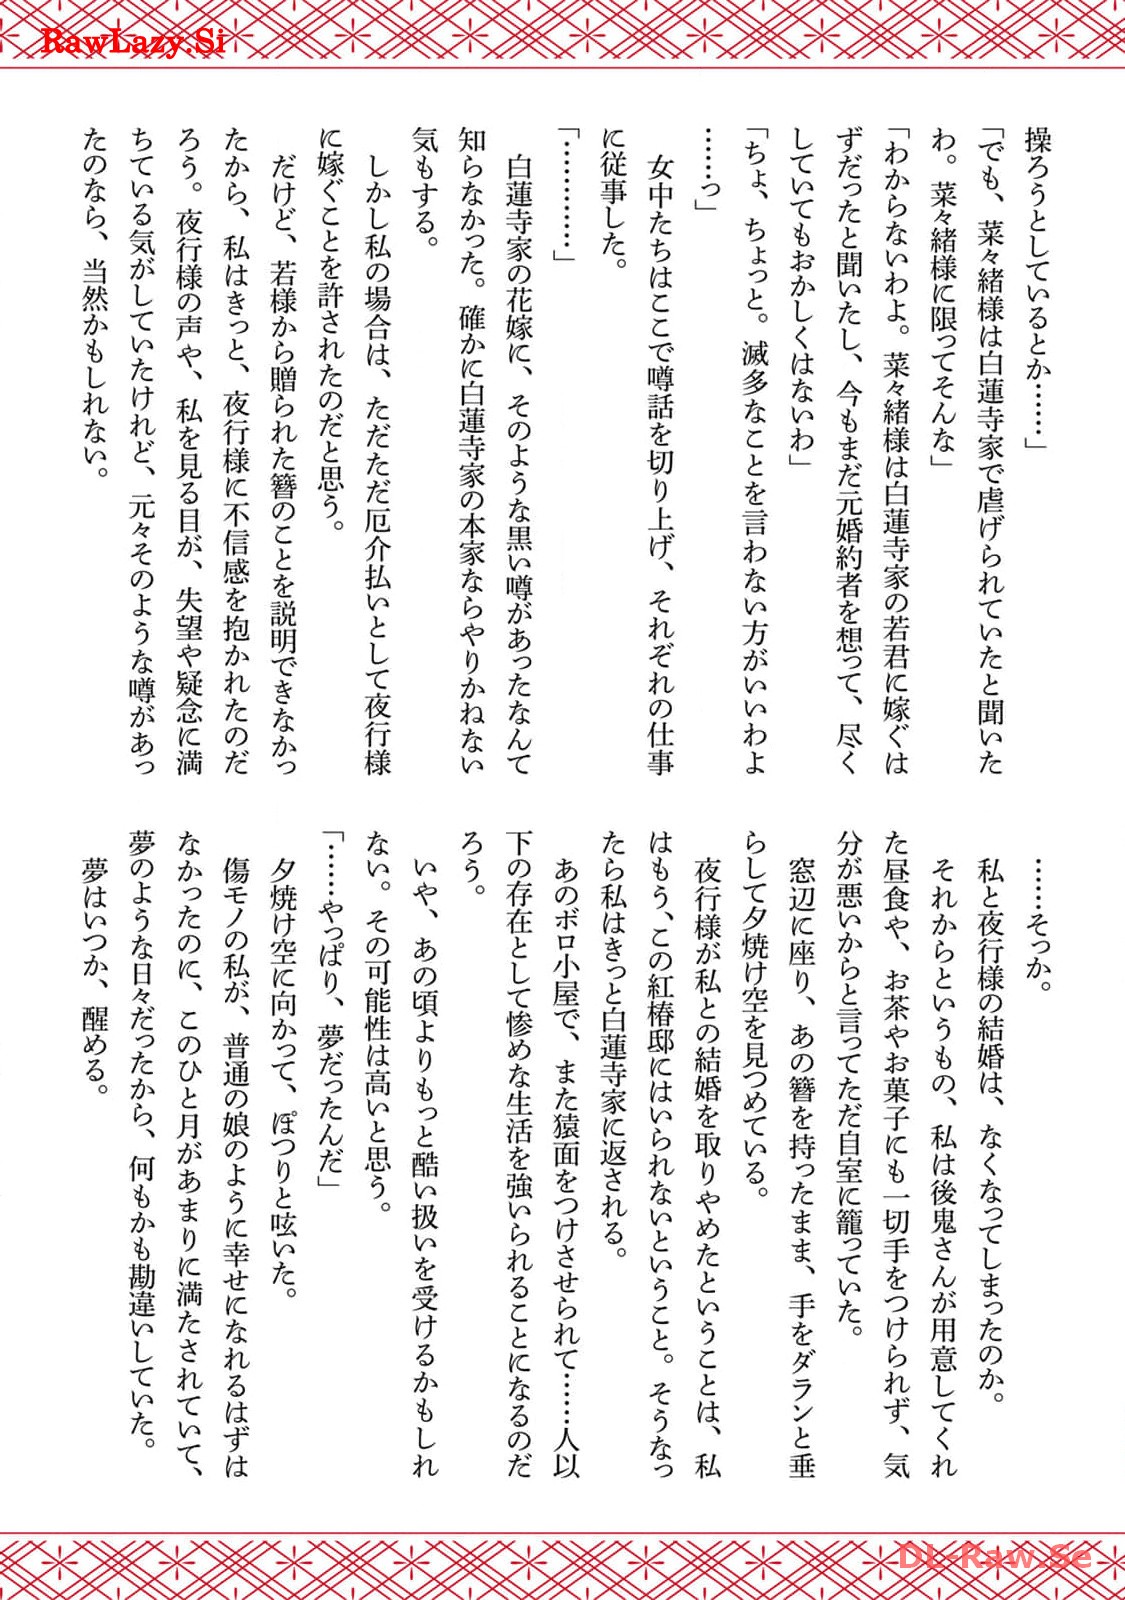 RawLazy.Si
操ろうとしているとか……」
「でも、菜々緒様は白蓮寺家で虐げられていたと聞いた
わ。菜々緒様に限ってそんな」
「わからないわよ。菜々緒様は白蓮寺家の若君に嫁ぐは
ずだったと聞いたし、今もまだ元婚約者を想って、尽く
していてもおかしくはないわ」
「ちょ、ちょっと。滅多なことを言わない方がいいわよ
……っ」
女中たちはここで噂話を切り上げ、それぞれの仕事
に従事した。
「…………」
白蓮寺家の花嫁に、そのような黒い噂があったなんて
知らなかった。確かに白蓮寺家の本家ならやりかねない
気もする。
しかし私の場合は、ただただ厄介払いとして夜行様
に嫁ぐことを許されたのだと思う。
だけど、若様から贈られた簪のことを説明できなかっ
たから、私はきっと、夜行様に不信感を抱かれたのだ
ろう。夜行様の声や、私を見る目が、失望や疑念に満
ちている気がしていたけれど、元々そのような噂があっ
たのなら、当然かもしれない。
……そっか。
私と夜行様の結婚は、なくなってしまったのか。
それからというもの、私は後鬼さんが用意してくれ
た昼食や、お茶やお菓子にも一切手をつけられず、気
分が悪いからと言ってただ自室に籠っていた。
窓辺に座り、あの簪を持ったまま、手をダランと垂
らして夕焼け空を見つめている。
夜行様が私との結婚を取りやめたということは、私
はもう、この紅椿邸にはいられないということ。そうなっ
たら私はきっと白蓮寺家に返される。
あのボロ小屋で、また猿面をつけさせられて……人以
下の存在として惨めな生活を強いられることになるのだ
ろう。
いや、あの頃よりもっと酷い扱いを受けるかもしれ
ない。その可能性は高いと思う。
「……やっぱり、夢だったんだ」
夕焼け空に向かって、ぽつりと呟いた。
傷モノの私が、普通の娘のように幸せになれるはずは
なかったのに、このひと月があまりに満たされていて、
夢のような日々だったから、何もかも勘違いしていた。
夢はいつか、醒める。
DL-Raw.Se